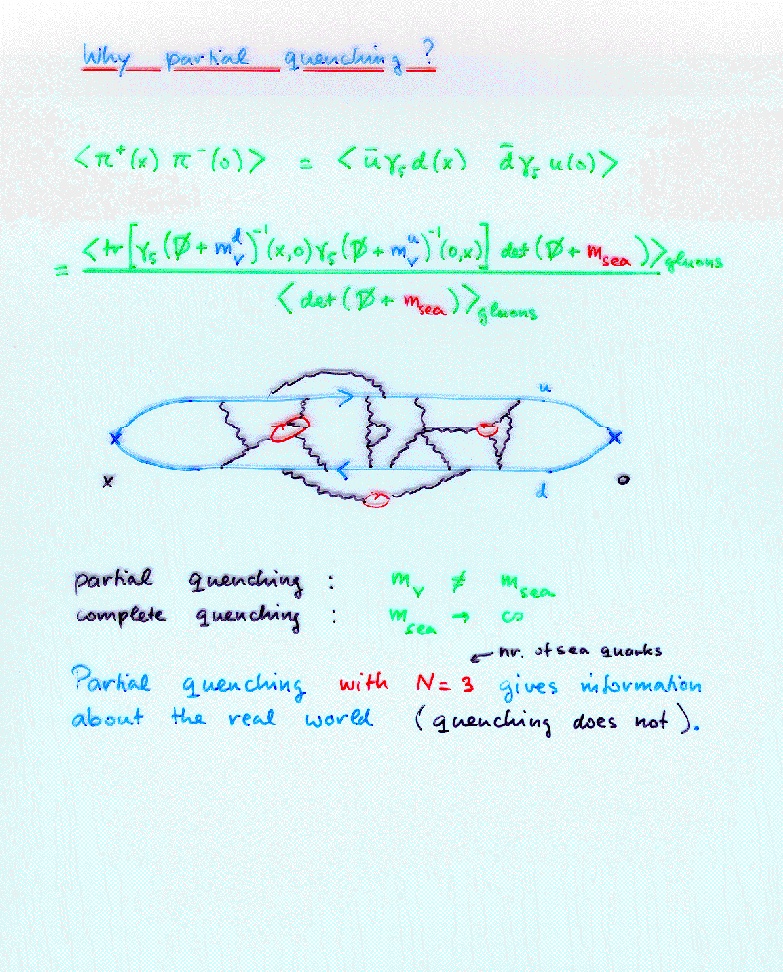 Why partial quenching ?
⟨π⁺(x) π⁻(0)⟩ = ⟨ūγ₅d(x) d̄γ₅u(0)⟩
= ⟨tr[γ₅(D̸ + m_v^d)⁻¹(x,0)γ₅(D̸ + m_v^u)⁻¹(0,x)] det(D̸ + m_sea)⟩_gluons
⟨det(D̸ + m_sea)⟩_gluons
u
x o
d
partial quenching : m_v ≠ m_sea
complete quenching : m_sea → ∞
← nr. of sea quarks
Partial quenching with N = 3 gives information
about the real world (quenching does not).